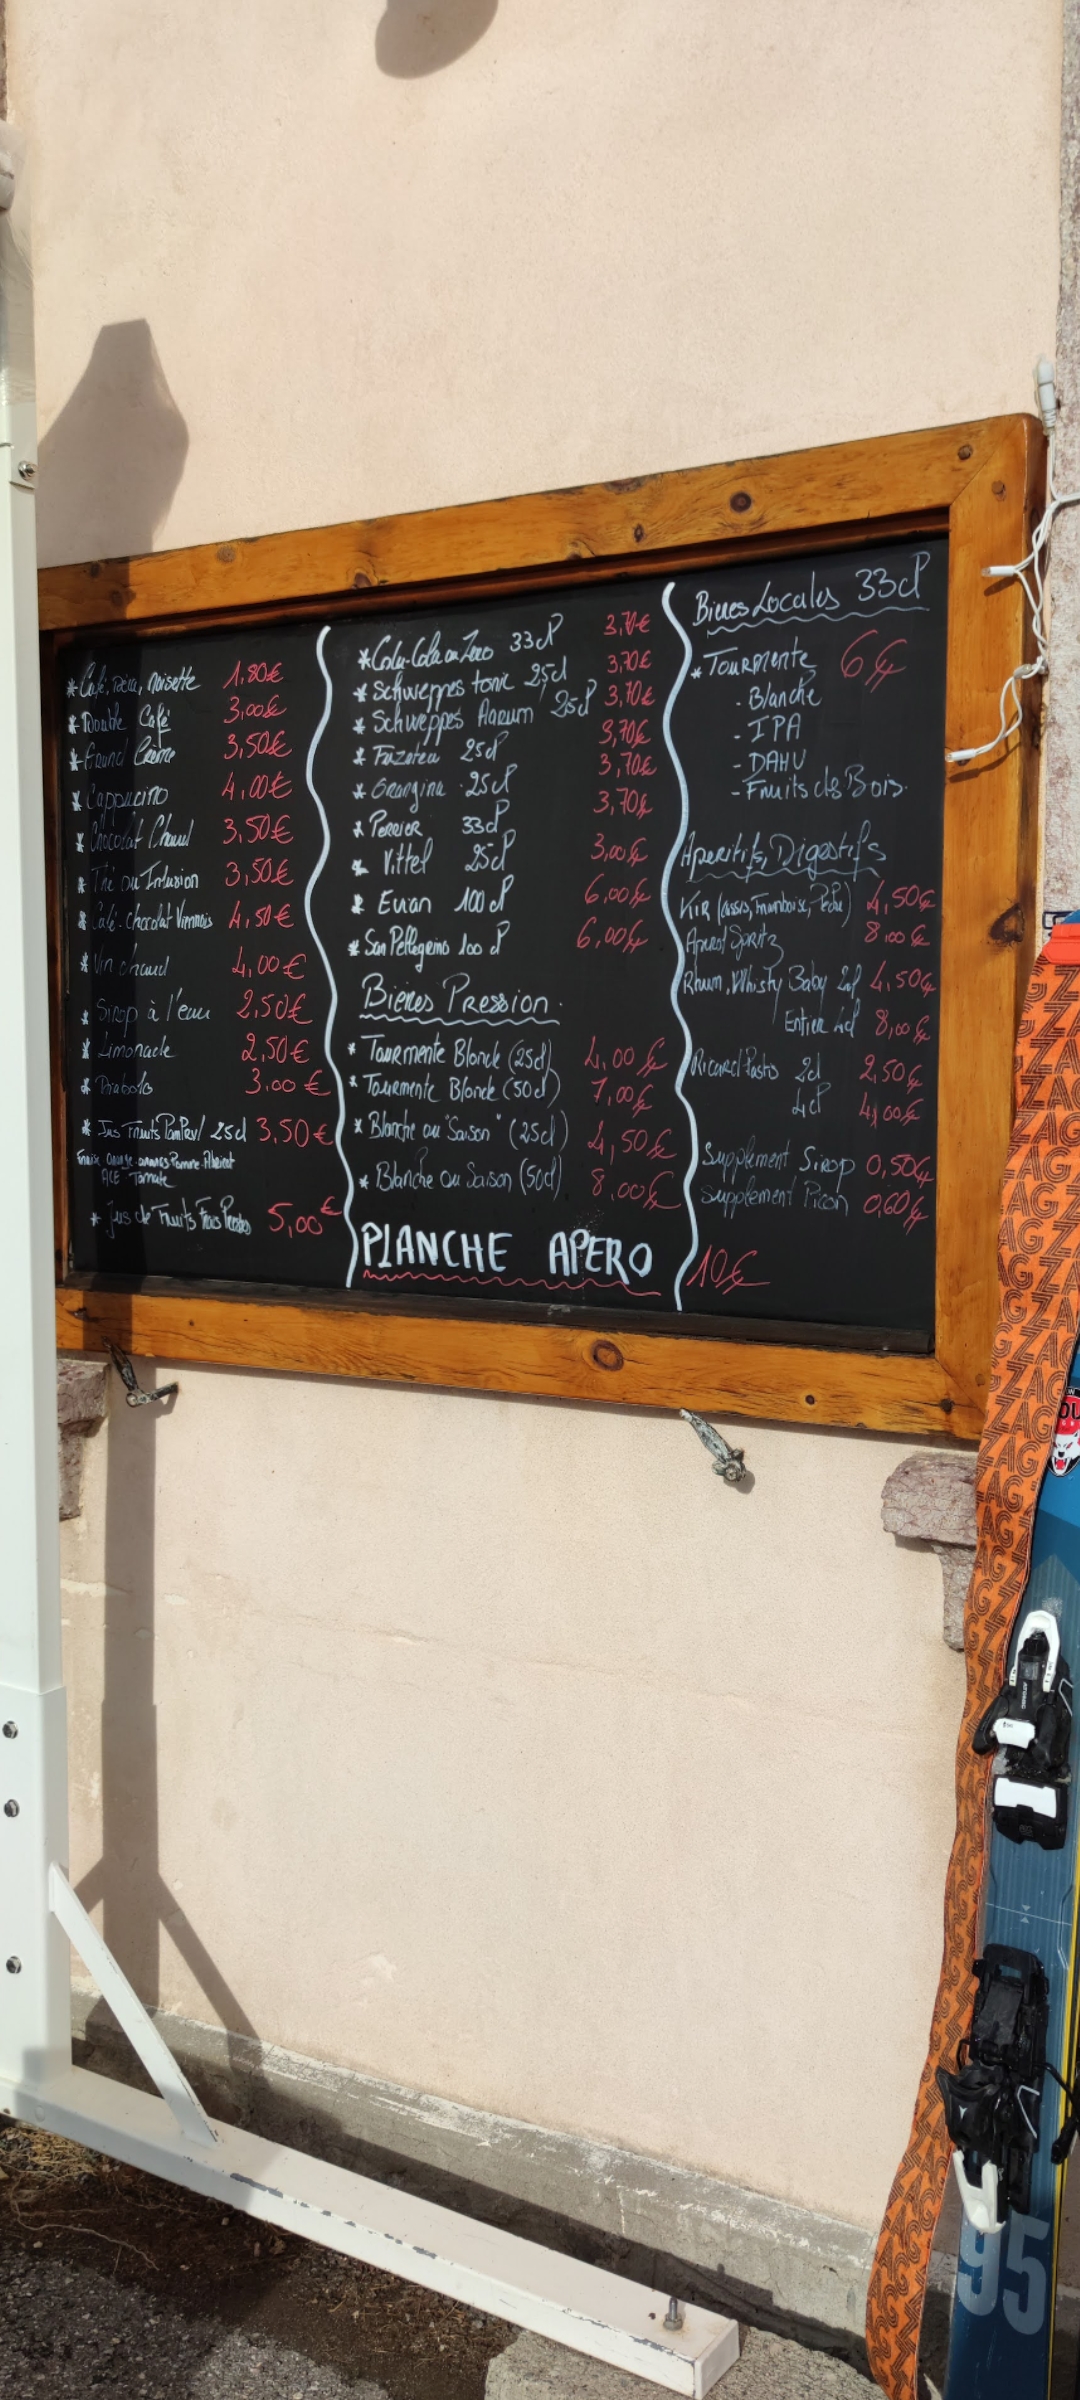 * Café, Déca, noisette 1,80€
* Double Café 3,00€
* Grand Crème 3,50€
* Cappucino 4,00€
* Chocolat Chaud 3,50€
* Thé ou Infusion 3,50€
* Café-chocolat Viennois 4,50€
* Vin chaud 4,00€
* Sirop à l'eau 2,50€
* Limonade 2,50€
* Diabolo 3,00€
* Jus Fruits PamPryl 25cl 3,50€
Fraise orange-ananas Pomme-Abricot
ACE Tomate
* Jus de Fruits Frais Pressés 5,00€
* Coca-Cola ou Zero 33cl 3,70€
* Schweppes tonic 25cl 3,70€
* Schweppes Agrum' 25cl 3,70€
* Fuzetea 25cl 3,70€
* Orangina 25cl 3,70€
* Perrier 33cl 3,70€
* Vittel 25cl 3,00€
* Evian 100cl 6,00€
* San Pellegrino 100cl 6,00€
Bières Pression.
* Tourmente Blonde (25cl) 4,00€
* Tourmente Blonde (50cl) 7,00€
* Blanche ou "Saison" (25cl) 4,50€
* Blanche ou Saison (50cl) 8,00€
PLANCHE APERO 10€
Bieres Locales 33cl
* Tourmente 6€
- Blanche
- IPA
- DAHU
- Fruits des Bois.
Aperitifs, Digestifs
KIR (cassis, Framboise, Pêche) 4,50€
Aperol Spritz 8,00€
Rhum, Whisky Baby 2cl 4,50€
Entier 4cl 8,00€
Ricard Pastis 2cl 2,50€
4cl 4,00€
Supplement Sirop 0,50€
Supplement Picon 0,60€
ZAG
95